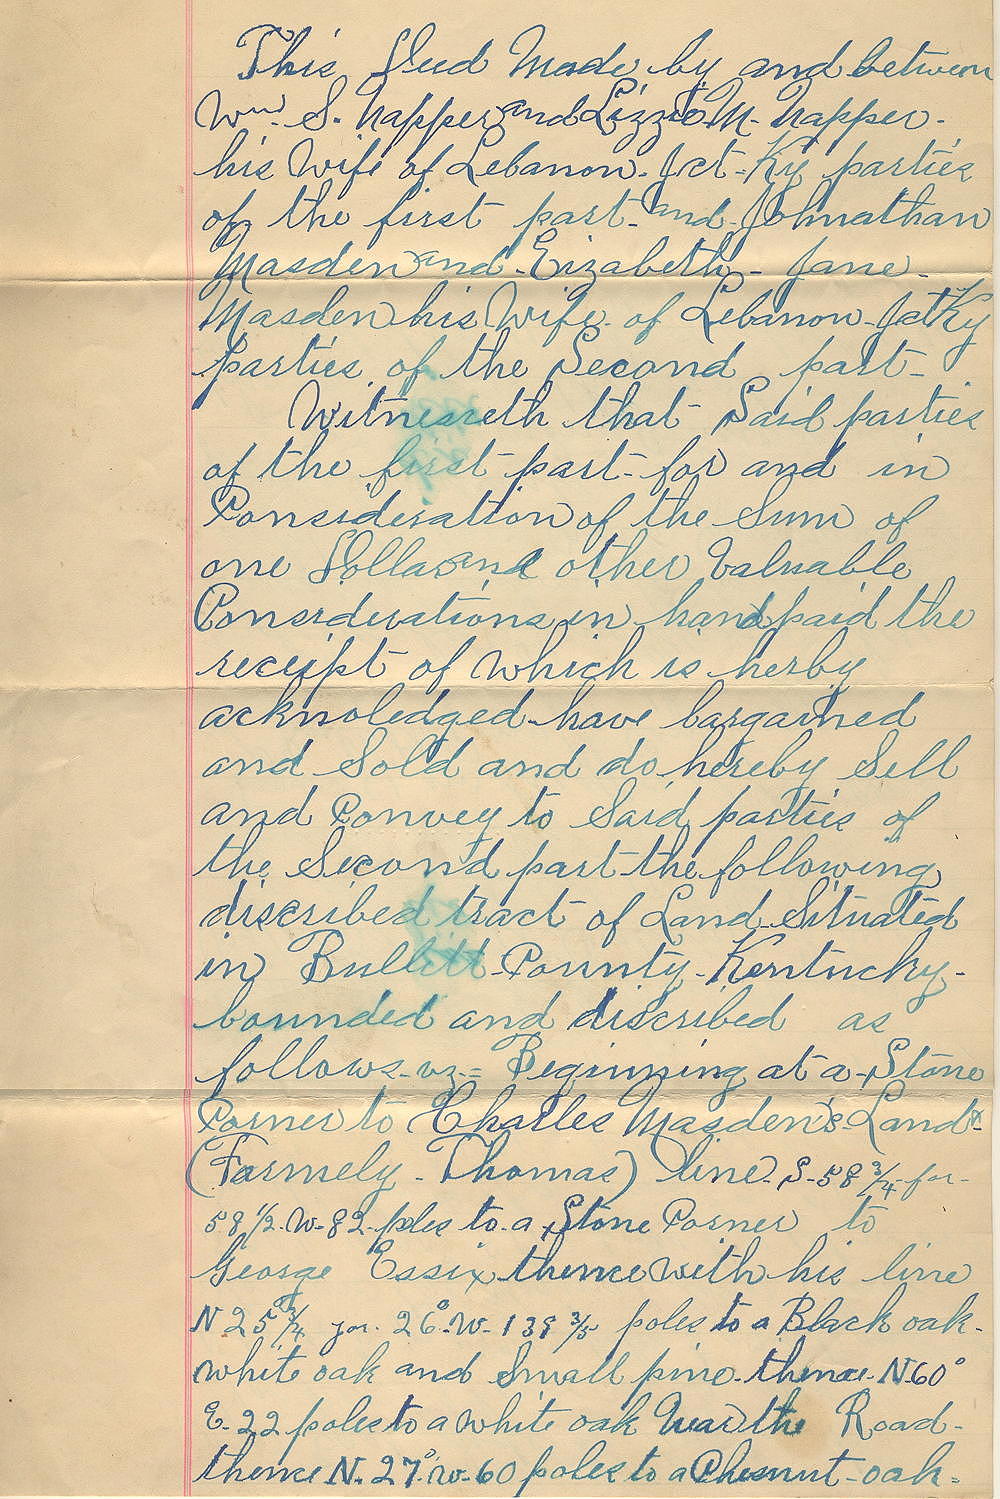 This Deed Made by and between
Wm. S. Napper and Lizzie M. Napper.
his Wife of Lebanon. Jct - Ky parties
of the first part - and Johnathan
Masden and - Eizabeth - Jane -
Masden his Wife of Lebanon - Jct Ky
parties of the Second part -
Witnesseth that - Said parties
of the first - part - for and in
Consideration of the Sum of
one Dolla and other Valuable
Considerations in hand paid the
receipt of which is herby
acknoledged - have bargained
and Sold and do hereby Sell
and Convey to Said parties of
the Second part the following
discribed tract of Land Situated
in Bullitt - County - Kentucky -
bounded and discribed as
follows - vz - = Beginning at a - Stone
Corner to Charles Masden's - Land
(Formely - Thomas) line - S - 58 3/4 - for -
58 1/2 - W - 82 - poles to - a Stone Corner to
George Essix thence with his line
N 25° 3/4 for - 26° - W - 139 3/5 poles to a Black oak -
white oak and Small pine - thence - N 60°
E - 22 poles to a white oak Near the Road -
thence N. 27° - W - 60 poles to a Chesnut - oak -